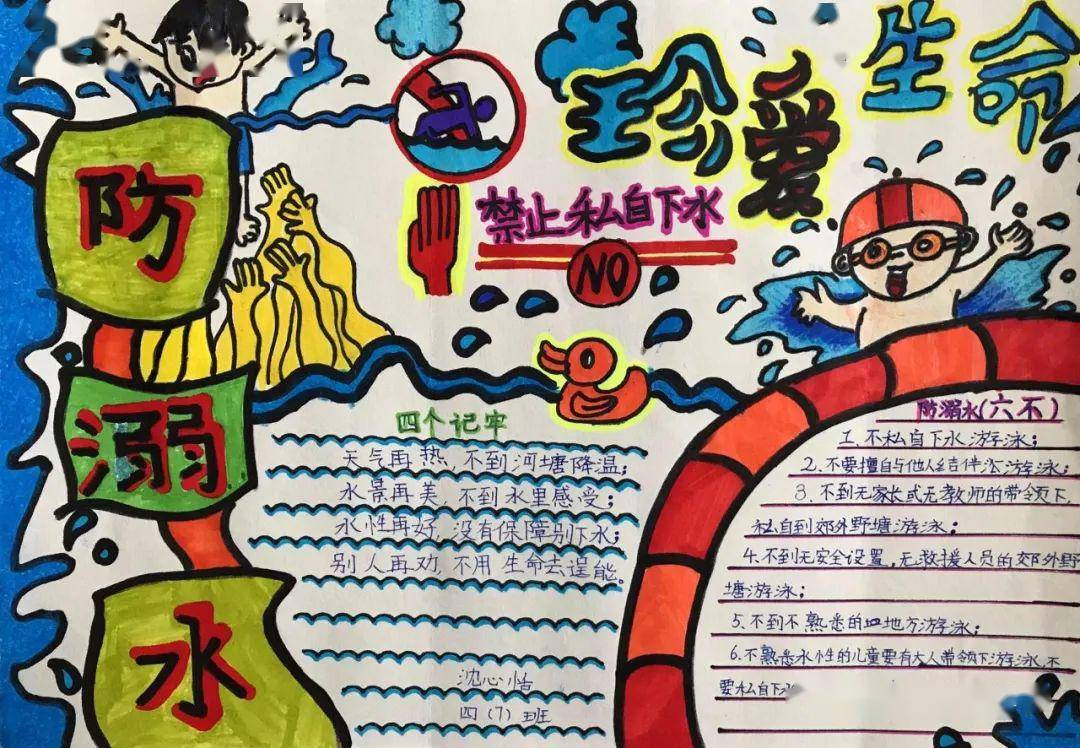 珍爱生命
防
溺
水
禁止私自下水
NO
四个记牢
天气再热,不到河塘降温;
水景再美,不到水里感受;
水性再好,没有保障别下水;
别人再劝,不用生命去逞能。
沈心恬
四(7)班
防溺水(六不)
1、不私自下水游泳;
2、不要擅自与他人结伴游泳;
3、不到无家长或无教师的带领下,
私自到郊外野塘游泳;
4、不到无安全设置,无救援人员的郊外野
塘游泳;
5、不到不熟悉的地方游泳;
6、不熟悉水性的儿童要有大人带领下游泳,不
要私自下水